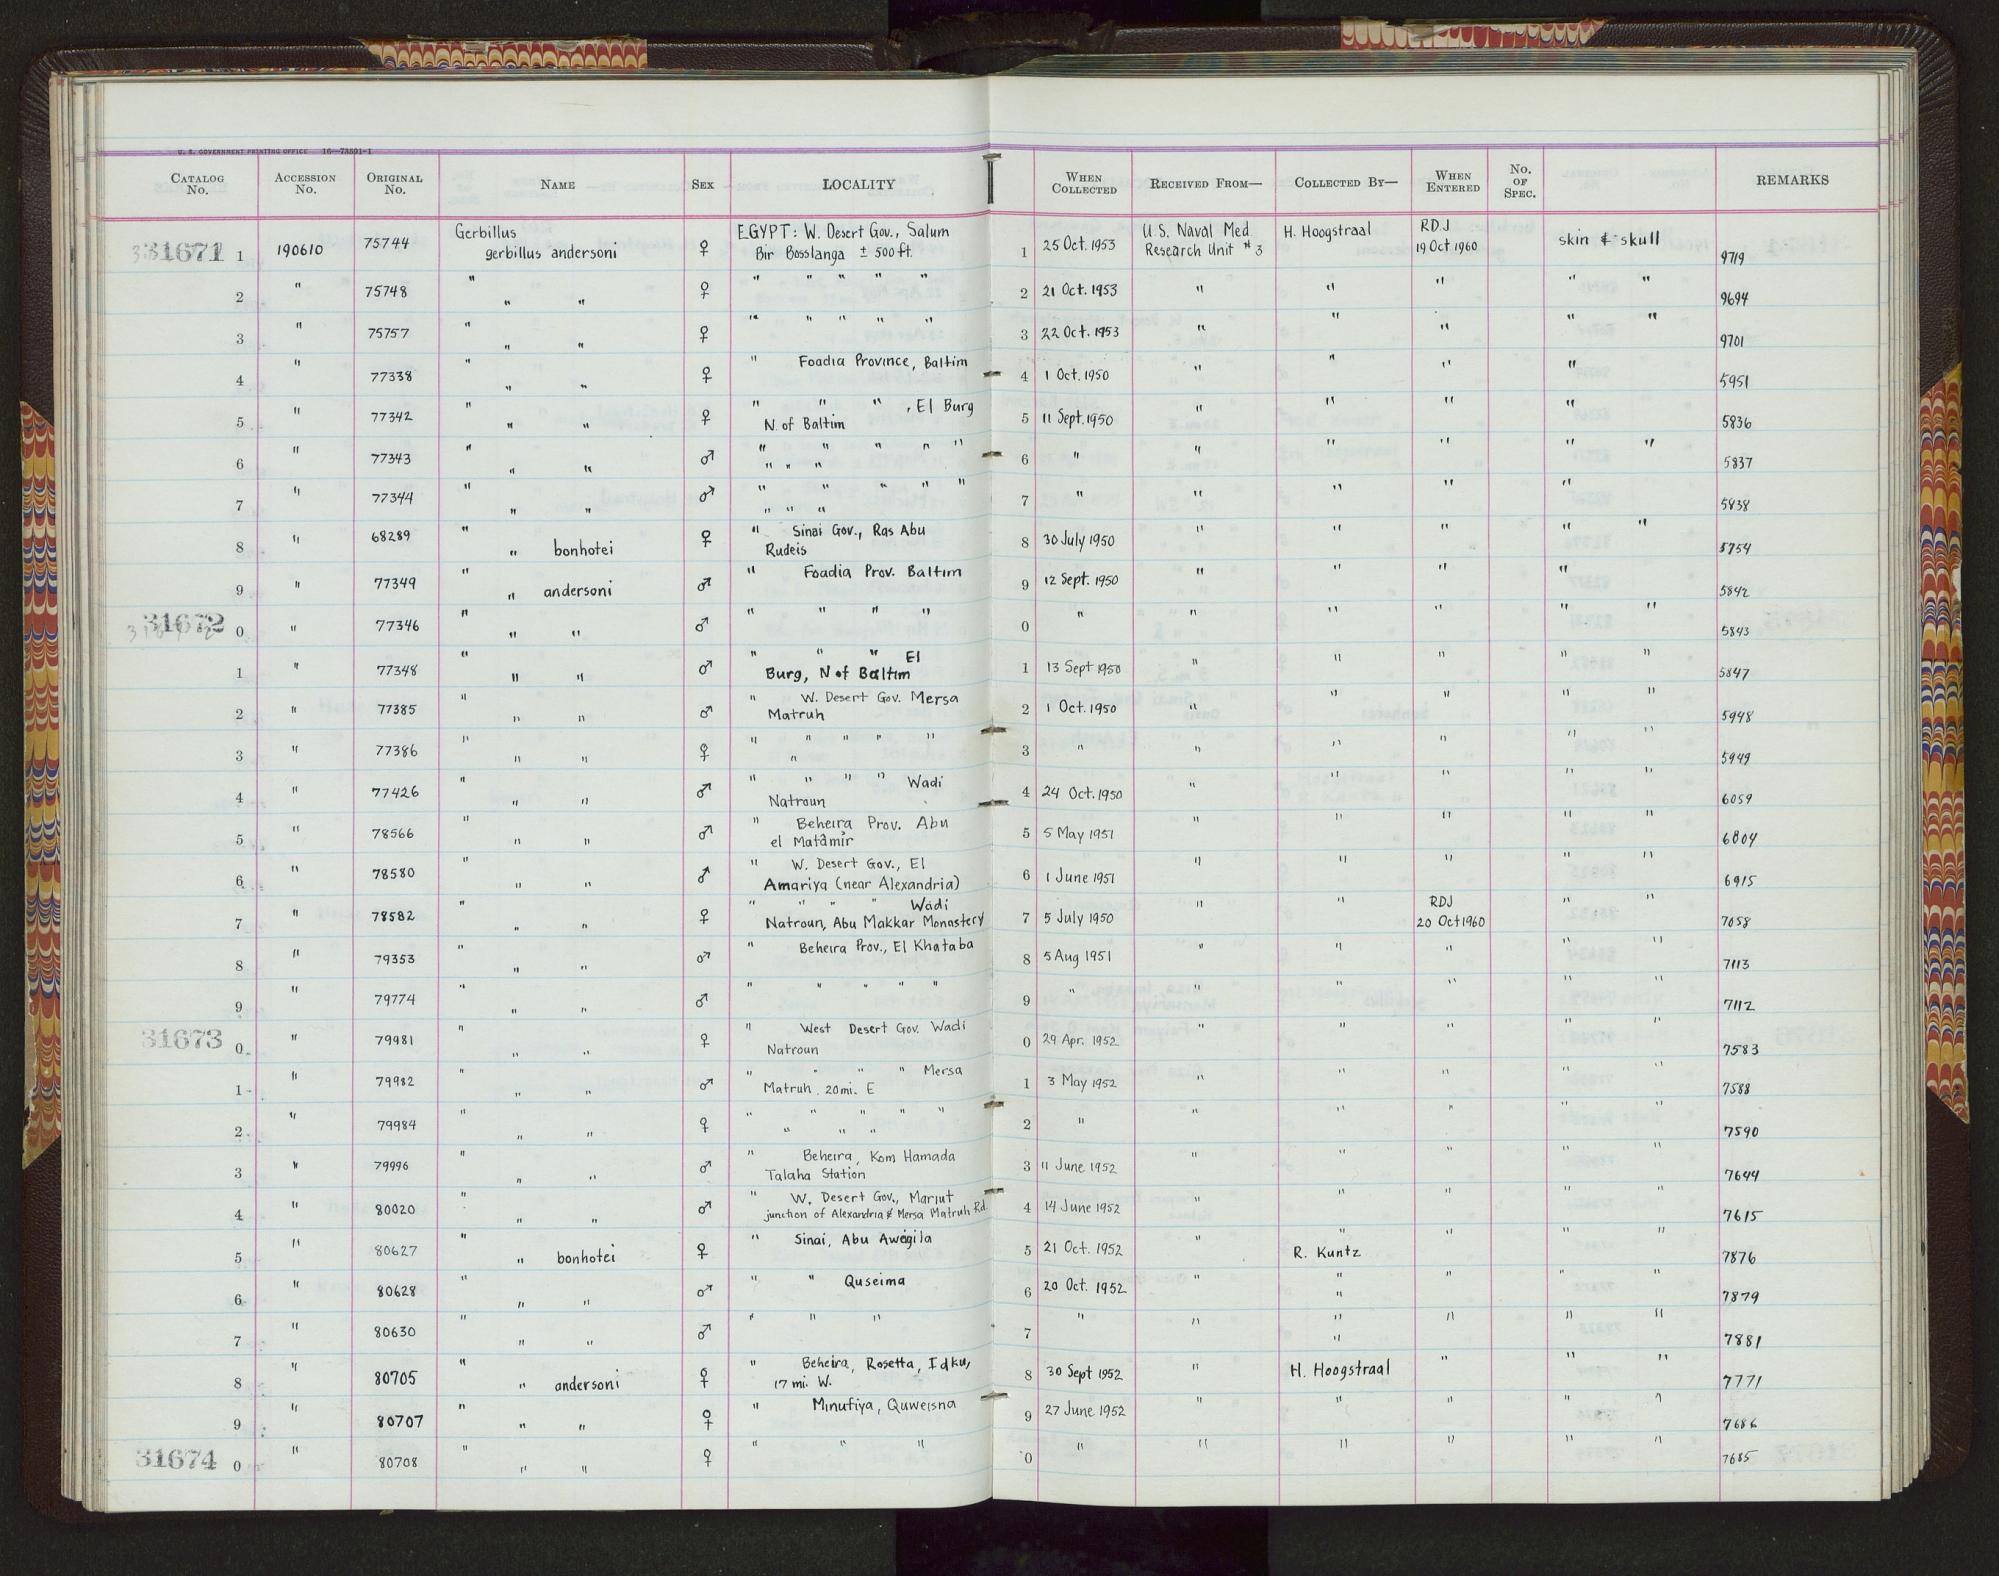 U. S. GOVERNMENT PRINTING OFFICE 16—73591-1
CATALOG No. ACCESSION No. ORIGINAL No. NAME SEX LOCALITY WHEN COLLECTED RECEIVED FROM— COLLECTED BY— WHEN ENTERED No. OF SPEC. REMARKS
31671 1 190610 75744 Gerbillus gerbillus andersoni ♀ EGYPT: W. Desert Gov., Salum Bir Bosslanga ± 500 ft. 1 25 Oct. 1953 U.S. Naval Med. Research Unit #3 H. Hoogstraal RDJ 19 Oct 1960 skin & skull 9719
2 " 75748 " " " ♀ " " " " " 2 21 Oct. 1953 " " " " " 9694
3 " 75757 " " " ♀ " " " " " 3 22 Oct. 1953 " " " " " 9701
4 " 77338 " " " ♀ " Foadia Province, Baltim 4 1 Oct. 1950 " " " " 5951
5 " 77342 " " " ♀ " " " , El Burg N. of Baltim 5 11 Sept. 1950 " " " " 5836
6 " 77343 " " " ♂ " " " " " " " " 6 " " " " " " 5837
7 " 77344 " " " ♂ " " " " " " " " 7 " " " " " 5838
8 " 68289 " " bonhotei ♀ " Sinai Gov., Ras Abu Rudeis 8 30 July 1950 " " " " " 5754
9 " 77349 " " andersoni ♂ " Foadia Prov. Baltim 9 12 Sept. 1950 " " " " 5842
31672 0 " 77346 " " " ♂ " " " " 0 " " " " " " 5843
1 " 77348 " " " ♂ " " " El Burg, N of Baltim 1 13 Sept 1950 " " " " " 5847
2 " 77385 " " " ♂ " W. Desert Gov. Mersa Matruh 2 1 Oct. 1950 " " " " " 5948
3 " 77386 " " " ♀ " " " " " " 3 " " " " " " 5949
4 " 77426 " " " ♂ " " " " Wadi Natroun 4 24 Oct. 1950 " " " " " 6059
5 " 78566 " " " ♂ " Beheira Prov. Abu el Matâmir 5 5 May 1951 " " " " " 6804
6 " 78580 " " " ♂ " W. Desert Gov., El Amariya (near Alexandria) 6 1 June 1951 " " " " " 6915
7 " 78582 " " " ♀ " " " " Wadi Natroun, Abu Makkar Monastery 7 5 July 1950 " " RDJ 20 Oct 1960 " " 7058
8 " 79353 " " " ♂ " Beheira Prov., El Khataba 8 5 Aug 1951 " " " " " 7113
9 " 79774 " " " ♂ " " " " " 9 " " " " " " 7112
31673 0 " 79981 " " " ♀ " West Desert Gov. Wadi Natroun 0 29 Apr. 1952 " " " " " 7583
1 " 79982 " " " ♂ " " " " Mersa Matruh, 20 mi. E 1 3 May 1952 " " " " 7588
2 " 79984 " " " ♀ " " " " " " " " 2 " " " " " " 7590
3 " 79996 " " " ♂ " Beheira, Kom Hamada Talaha Station 3 11 June 1952 " " " " " 7644
4 " 80020 " " " ♂ " W. Desert Gov., Mariut junction of Alexandria & Mersa Matruh Rd. 4 14 June 1952 " " " " " 7615
5 " 80627 " " bonhotei ♀ " Sinai, Abu Awegila 5 21 Oct. 1952 " " R. Kuntz " " " 7876
6 " 80628 " " " ♂ " " Quseima 6 20 Oct. 1952 " " " " " " 7879
7 " 80630 " " " ♂ " " " 7 " " " " " " " 7881
8 " 80705 " " andersoni ♀ " Beheira, Rosetta, Idku, 17 mi. W. 8 30 Sept 1952 " H. Hoogstraal " " " 7771
9 " 80707 " " " ♀ " Minufiya, Quweisna 9 27 June 1952 " " " " " 7686
31674 0 " 80708 " " " ♀ " " " 0 " " " " " " 7685